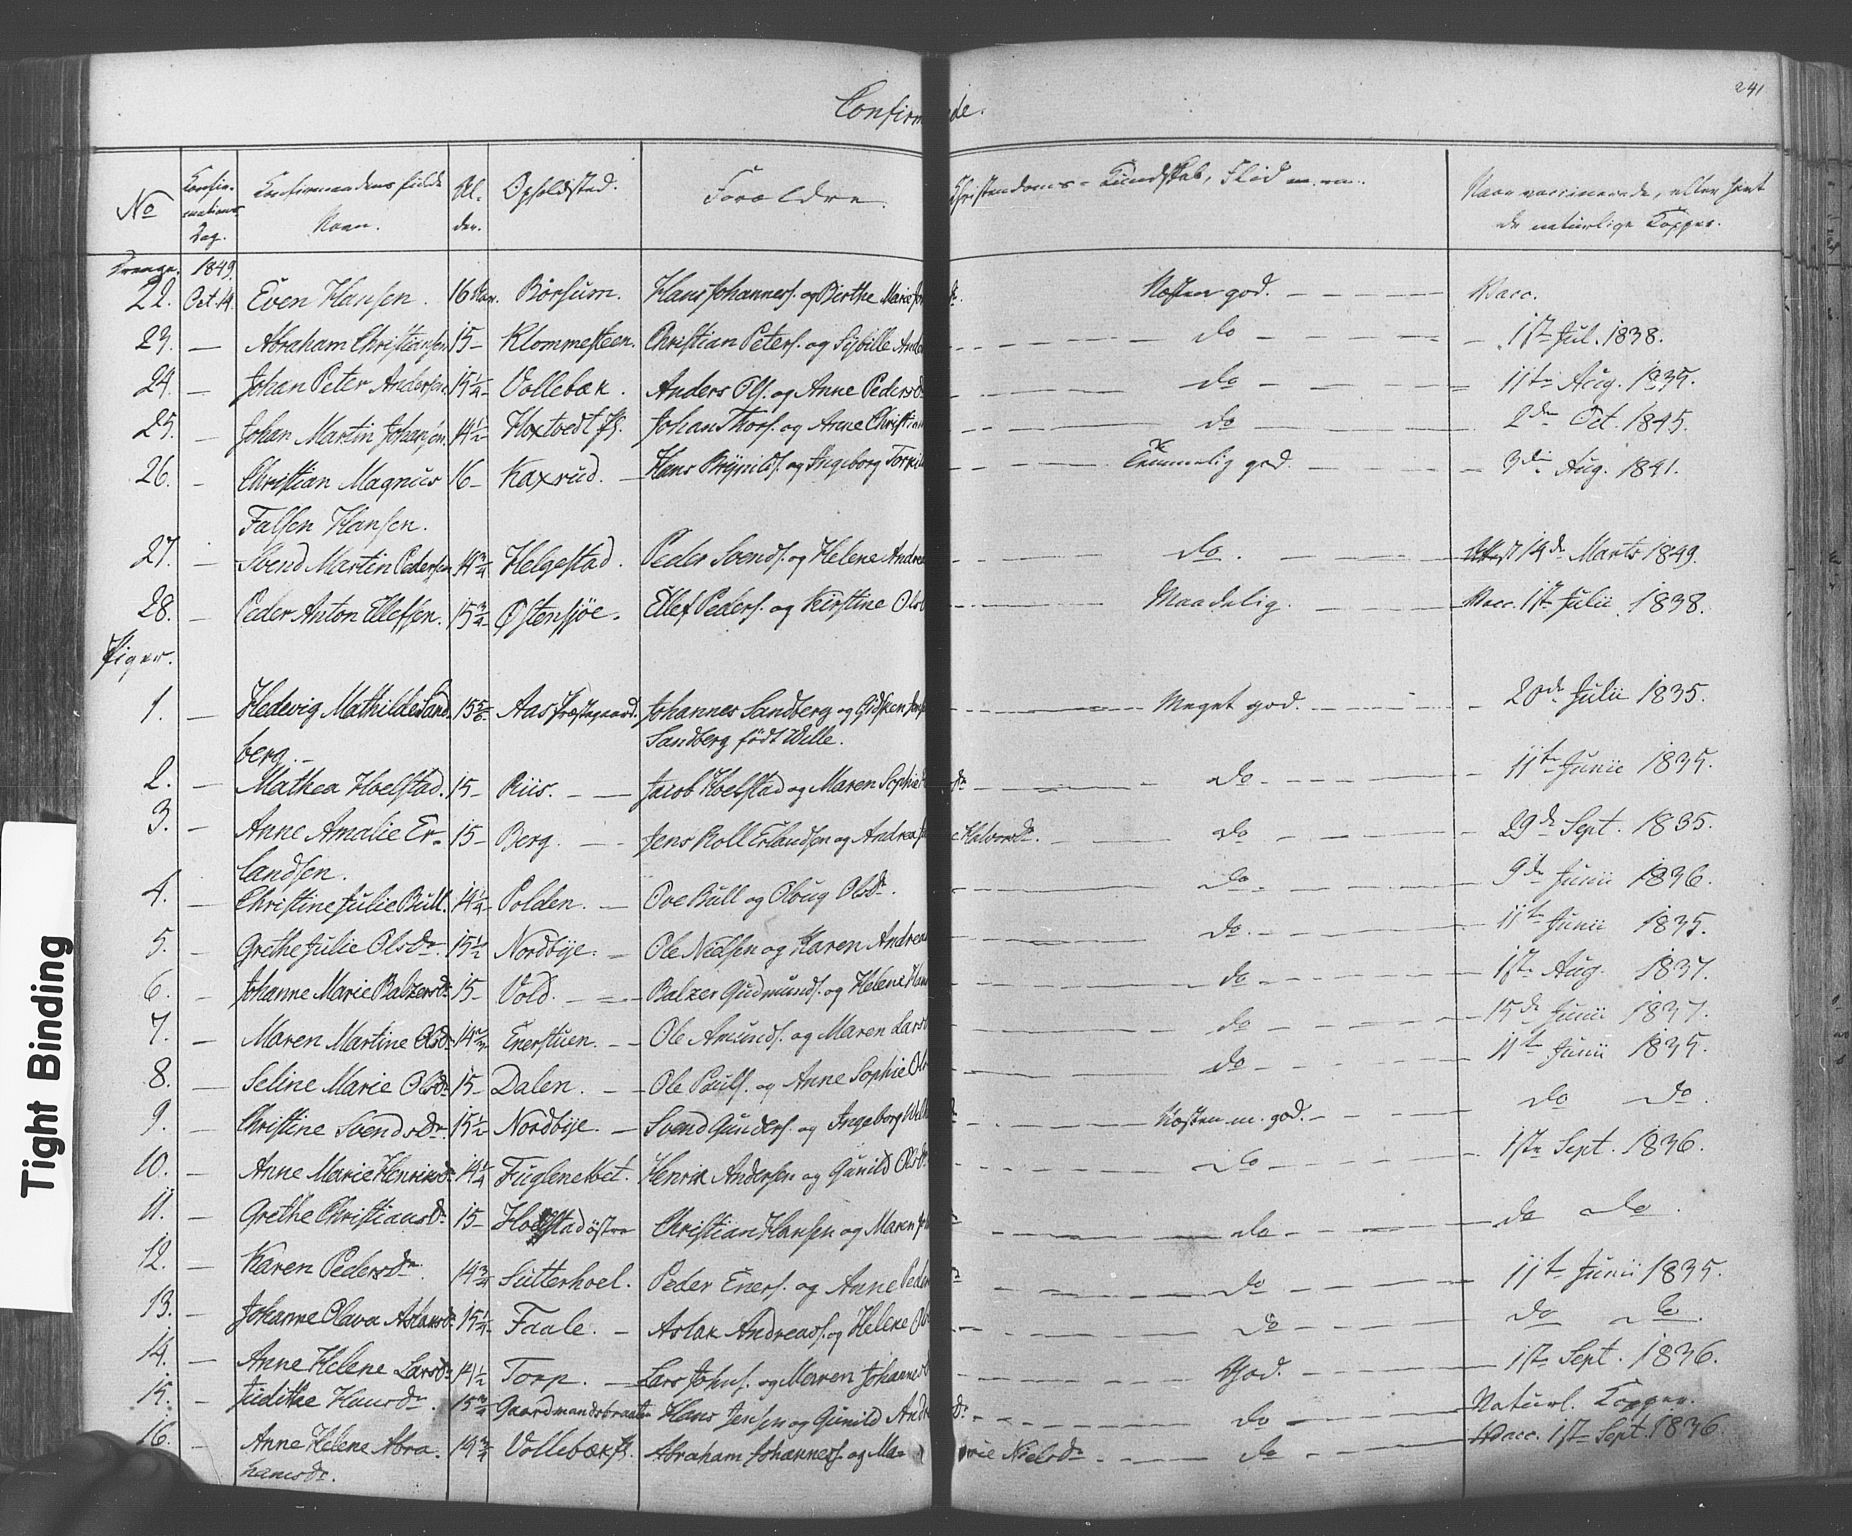 241
Confirm de.
No Confir-mations Dag. Confirmandens fulde Navn. Al-der. Opholdsted. Forældre. Christendoms-Kundskab, Flid m.m. Naar vaccinerede, eller havt de naturlige Kopper.
Drenge. 1849.
22. Oct. 14. Even Hansen. 16 Børsum. Hans Johannes. og Birthe Marie Næsten god. Vacc.
23. — Abraham Christiansen 15 — Klommesteen. Christian Peters. og Sybille do 1ste Jul. 1838.
24. — Johan Peter Andersen 15 1/4 Vollebæk. Anders Ols. og Anne Pedersd do 11te Aug. 1835.
25. — Johan Martin Johansen 14 1/2 Hoxtvedt Johan Thors. og Anne Christian do 2den Oct. 1845.
26. — Christian Magnus 16 — Kaxrud. — Hans Brynilds. og Ingeborg Torkil Temmelig god. 3die Aug. 1841.
Falsen Hansen.
27. — Svend Martin Pedersen 14 3/4 Helgestad. Peder Svends. og Helene Andrea do. 14de Marts 1849.
28. — Peder Anton Ellefsen. 15 3/4 Østensjøe. Ellef Peders. og Kirstine Ols Maadelig. Vacc. 1ste Julii 1838.
Piger.
1. — Hedevig Mathilde Sand 15 5/6 Aas Præstegaard. Johannes Sandberg og Gidsken Meget god. 20de Julii 1835.
berg. — Sandberg født Wille.
2. — Mathea Hoelstad. 15 — Riis. — Jacob Hoelstad og Maren Sophie do 11te Junii 1835.
3. — Anne Amalie Er- 15 — Berg. — Jens Roll Erlandsen og Andrea Halvorsdr. do 29de Sept. 1835.
landsen.
4. — Christine Julie Bull. 14 1/4 Polden. — Ove Bull og Oloug Olsdr. do 9de Junii 1836.
5. — Grethe Julie Olsdr. 15 1/2 Nordbye. — Ole Nielsen og Karen Andrea do. 11te Junii 1835.
6. — Johanne Marie Balzersdr 15 — Vold. — Balzer Gudmunds. og Helene Han do 1ste Aug. 1837.
7. — Maren Martine Olsdr 14 2/3 Enerstuen. — Ole Amunds. og Maren Lars do 15de Junii 1837.
8. — Seline Marie Olsdr 15 — Dalen. — Ole Pauls. og Anne Sophie Ols do 11te Junii 1835.
9. — Christine Svendsdr. 15 1/2 Nordbye. — Svend Gunders. og Ingeborg Næsten m. god. do do
10. — Anne Marie Henriksdr 14 1/4 Fuglenebbet. Henrik Andersen og Gunild Ols do 1ste Sept. 1836.
11. — Grethe Christiansdr 15 — Hoelstad østre Christian Hansen og Maren do do do.
12. — Karen Pedersdr. 14 3/4 Sutterhoel. Peder Eners. og Anne Peder do 11te Junii 1835.
13. — Johanne Olava Aslaksdr. 15 1/4 Faale. — Aslak Andreas. og Helene Ols do do do.
14. — Anne Helene Larsdr 14 1/2 Torp. — Lars Johns. og Maren Johannes God. 1ste Sept. 1836.
15. — Judithe Hansdr. 15 3/4 Gaardmandsbraaten Hans Jensen og Gunild Andr do Naturl. Kopper.
16. — Anne Helene Abra 14 3/4 Vollebæk Abraham Johannes. og Ma-rie Nielsdr. do Vacc. 1ste Sept. 1836.
hamsdr.
Tight Binding